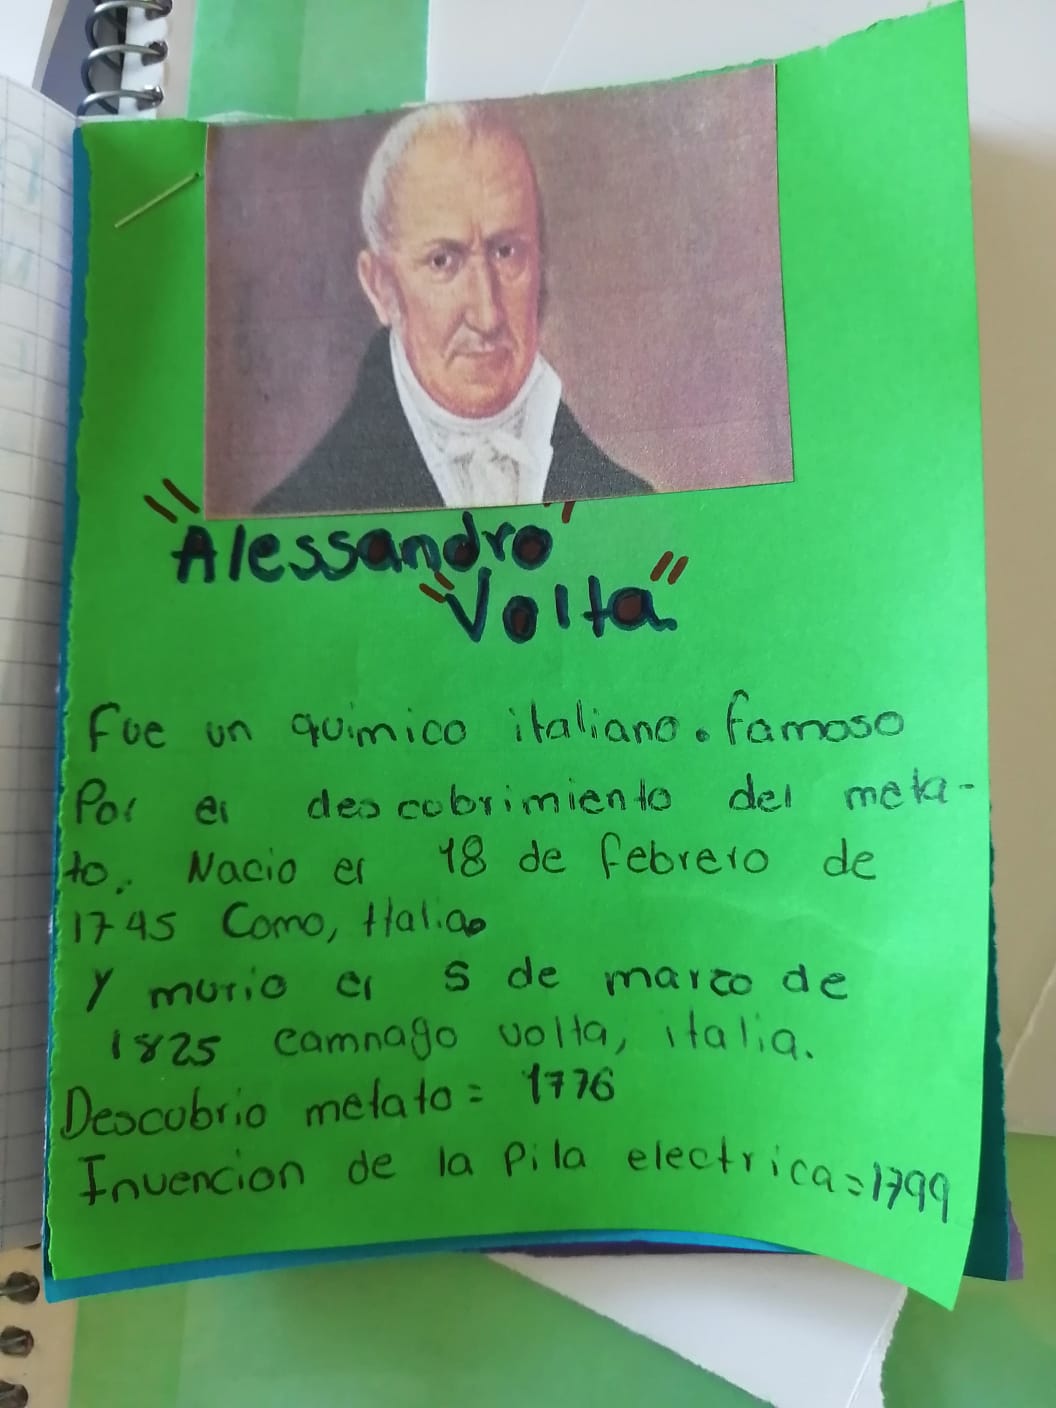 "Alessandro"
"Volta"
Fue un quimico italiano. famoso
Por el descobrimiento del meta-
to. Nacio el 18 de febrero de
1745 Como, Italia.
Y murio el 5 de marzo de
1825 camnago volta, italia.
Descubrio metato= 1776
Invencion de la Pila electrica=1799